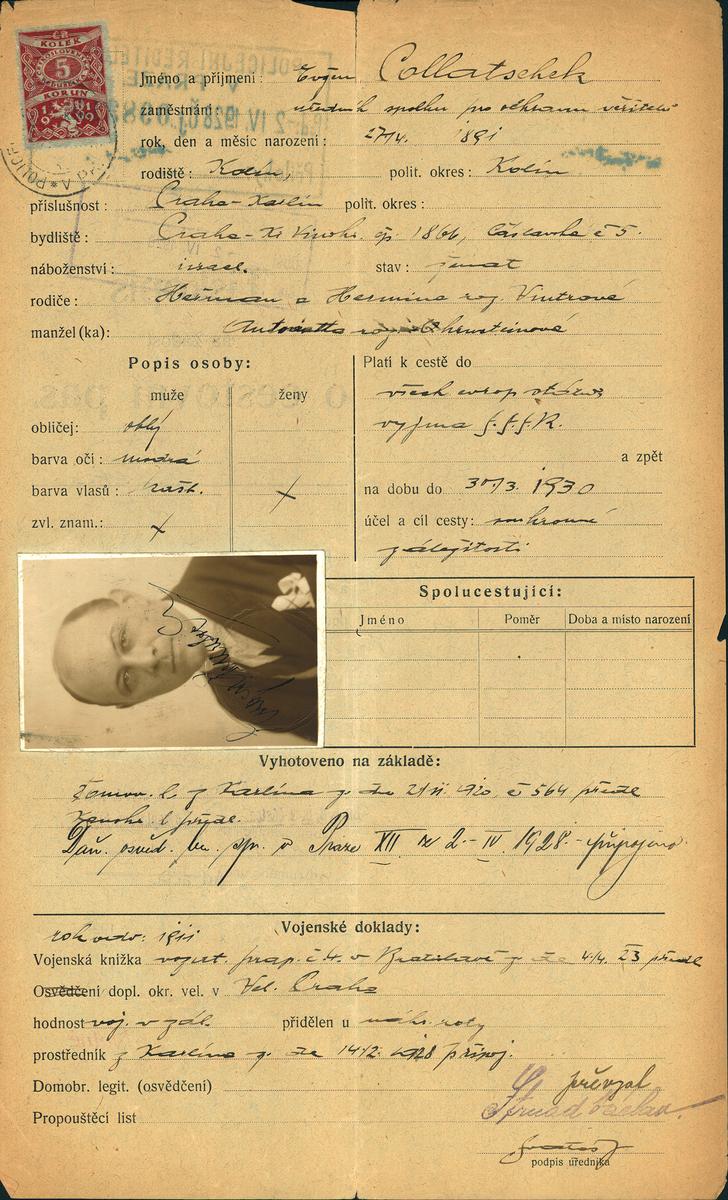 KOLEK
5
KORUN
Jméno a příjmení: Evžen Collatschek
zaměstnání: úředník spolku pro ochranu věřitelů
rok, den a měsíc narození: 27/4. 1891
rodiště: Kolín, polit. okres: Kolín
příslušnost: Praha-Karlín polit. okres:
bydliště: Praha-XI Vinohr. čp. 1866, Čáslavská č 5.
náboženství: israel. stav: ženat
rodiče: Heřman a Hermine roz.
manžel (ka): Antonietta roz.
Popis osoby:
muže ženy
obličej: oblý
barva očí: modrá
barva vlasů: kašt. x
zvl. znam.: x
Platí k cestě do
všech evrop států
vyjma
a zpět
na dobu do 30/3. 1930
účel a cíl cesty: soukromé
záležitosti
Spolucestující:
Jméno Poměr Doba a místo narození
Vyhotoveno na základě:
Domov. l. z Karlína z. de 21/11. 1920, č 564 předl
předl.
Daň. osvěd. ber. spr. v Praze XII ze 2.-IV. 1928.- připojeno
Vojenské doklady:
rok odv: 1911
Vojenská knížka v Bratislavě z de 4./4. 23 předl
Osvědčení dopl. okr. vel. v Vel. Praha
hodnost voj. v zál. přidělen u náhr. roty
prostředník z Karlína z. de 14/2. 1928 připoj.
Domobr. legit. (osvědčení)
Propouštěcí list
převzal
Václav
podpis úředníka